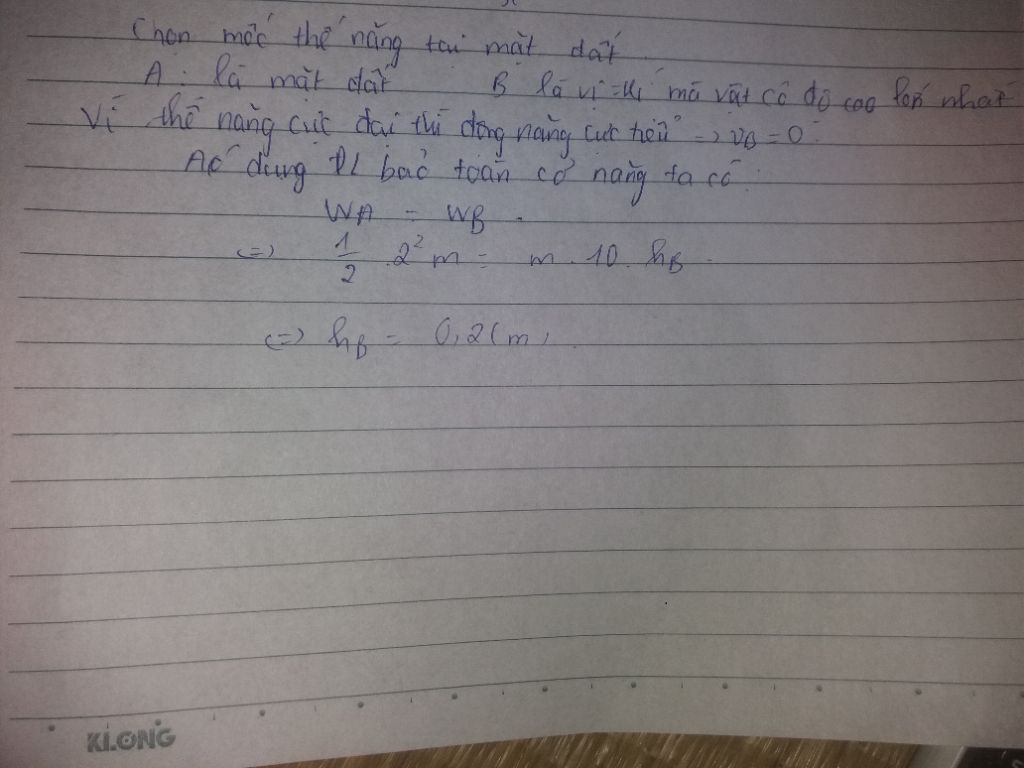 Chọn mốc thế năng tại mặt đất
A : là mặt đất B là vị trí mà vật có độ cao lớn nhất
Vì thế năng cực đại thì động năng cực tiểu => vB = 0
Áp dụng ĐL bảo toàn cơ năng ta có :
WA = WB .
<=> 1/2 . 2² m = m . 10 . hB .
<=> hB = 0,2 (m) .
KLONG